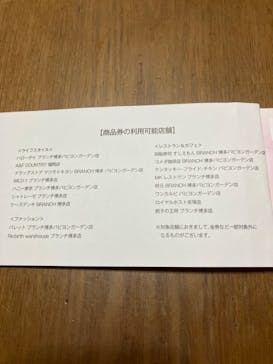 【商品券の利用可能店舗】
<ライフスタイル>
ハローデイ ブランチ博多パピヨンガーデン店
A&F COUNTRY 福岡店
ドラッグストア マツモトキヨシ BRANCH 博多パピヨンガーデン店
ブランチ博多店
ハニー東京 ブランチ博多パピヨンガーデン店
シャトレーゼ ブランチ博多店
ケーズデンキ BRANCH 博多店
<ファッション>
パレット ブランチ博多パピヨンガーデン店
Re:birth warehouse ブランチ博多店
<レストラン&カフェ>
回転寿司 すしえもん BRANCH 博多パピヨンガーデン店
コメダ珈琲店 BRANCH 博多パピヨンガーデン店
ケンタッキー・フライド・チキン パピヨンガーデン店
MK レストラン ブランチ博多店
BRANCH 博多パピヨンガーデン店
ワンカルビ パピヨンガーデン店
ロイヤルホスト 店
餃子の王将 ブランチ博多店
※対象店舗におきまして、金券など一部対象外に
なるものがございます。